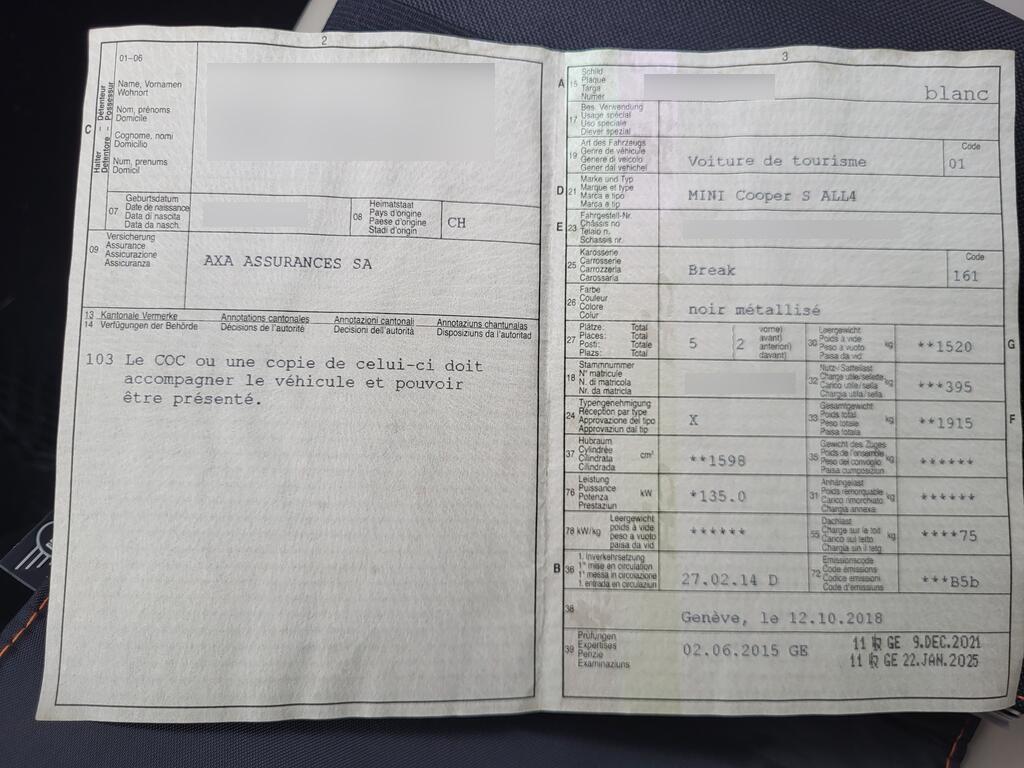 2
01-06
Name, Vornamen
Wohnort
Nom, prénoms
Domicile
Cognome, nomi
Domicilio
Num, prenums
Domicil
C
Halter – Détenteur
Detentore – Possessur
07
Geburtsdatum
Date de naissance
Data di nascita
Data da nasch.
08
Heimatstaat
Pays d'origine
Paese d'origine
Stadi d'origin
CH
09
Versicherung
Assurance
Assicurazione
Assicuranza
AXA ASSURANCES SA
13 Kantonale Vermerke Annotations cantonales Annotazioni cantonali Annotaziuns chantunalas
14 Verfügungen der Behörde Décisions de l'autorité Decisioni dell'autorità Disposiziuns da l'autoritad
103 Le COC ou une copie de celui-ci doit
accompagner le véhicule et pouvoir
être présenté.
3
A 15
Schild
Plaque
Targa
Numer
blanc
17
Bes. Verwendung
Usage spécial
Uso speciale
Diever spezial
19
Art des Fahrzeugs
Genre de véhicule
Genere di veicolo
Gener dal vehichel
Voiture de tourisme
Code
01
D 21
Marke und Typ
Marque et type
Marca e tipo
Marca e tip
MINI Cooper S ALL4
E 23
Fahrgestell-Nr.
Châssis no
Telaio n.
Schassis nr.
25
Karosserie
Carrosserie
Carrozzeria
Carossaria
Break
Code
161
26
Farbe
Couleur
Colore
Colur
noir métallisé
27
Plätze: Total
Places: Total
Posti: Totale
Plazs: Total
5
(2
vorne)
avant)
anteriori)
davant)
30
Leergewicht
Poids à vide
Peso a vuoto
Paisa da vid
kg
**1520
G
18
Stammnummer
N° matricule
N. di matricola
Nr. da matricla
32
Nutz-/Sattellast
Charge utile/sellette
Carico utile/sella
Chargia utila/sella
kg
***395
24
Typengenehmigung
Réception par type
Approvazione del tipo
Approvaziun dal tip
X
33
Gesamtgewicht
Poids total
Peso totale
Paisa totala
kg
**1915
F
37
Hubraum
Cylindrée
Cilindrata
Cilindrada
cm³
**1598
35
Gewicht des Zuges
Poids de l'ensemble
Peso del convoglio
Paisa cumposiziun
kg
******
76
Leistung
Puissance
Potenza
Prestaziun
kW
*135.0
31
Anhängelast
Poids remorquable
Carico rimorchiato
Chargia annexa
kg
******
78 kW/kg
Leergewicht
poids à vide
peso a vuoto
paisa da vid
******
55
Dachlast
Charge sur le toit
Carico sul tetto
Chargia sin il tetg
kg
****75
B 36
1. Inverkehrsetzung
1re mise en circulation
1a messa in circolazione
1. entrada en circulaziun
27.02.14 D
72
Emissionscode
Code émissions
Codice emissioni
Code d'emissiuns
***B5b
38
Genève, le 12.10.2018
39
Prüfungen
Expertises
Perizie
Examinaziuns
02.06.2015 GE
GE 9.DEC.2021
GE 22.JAN.2025